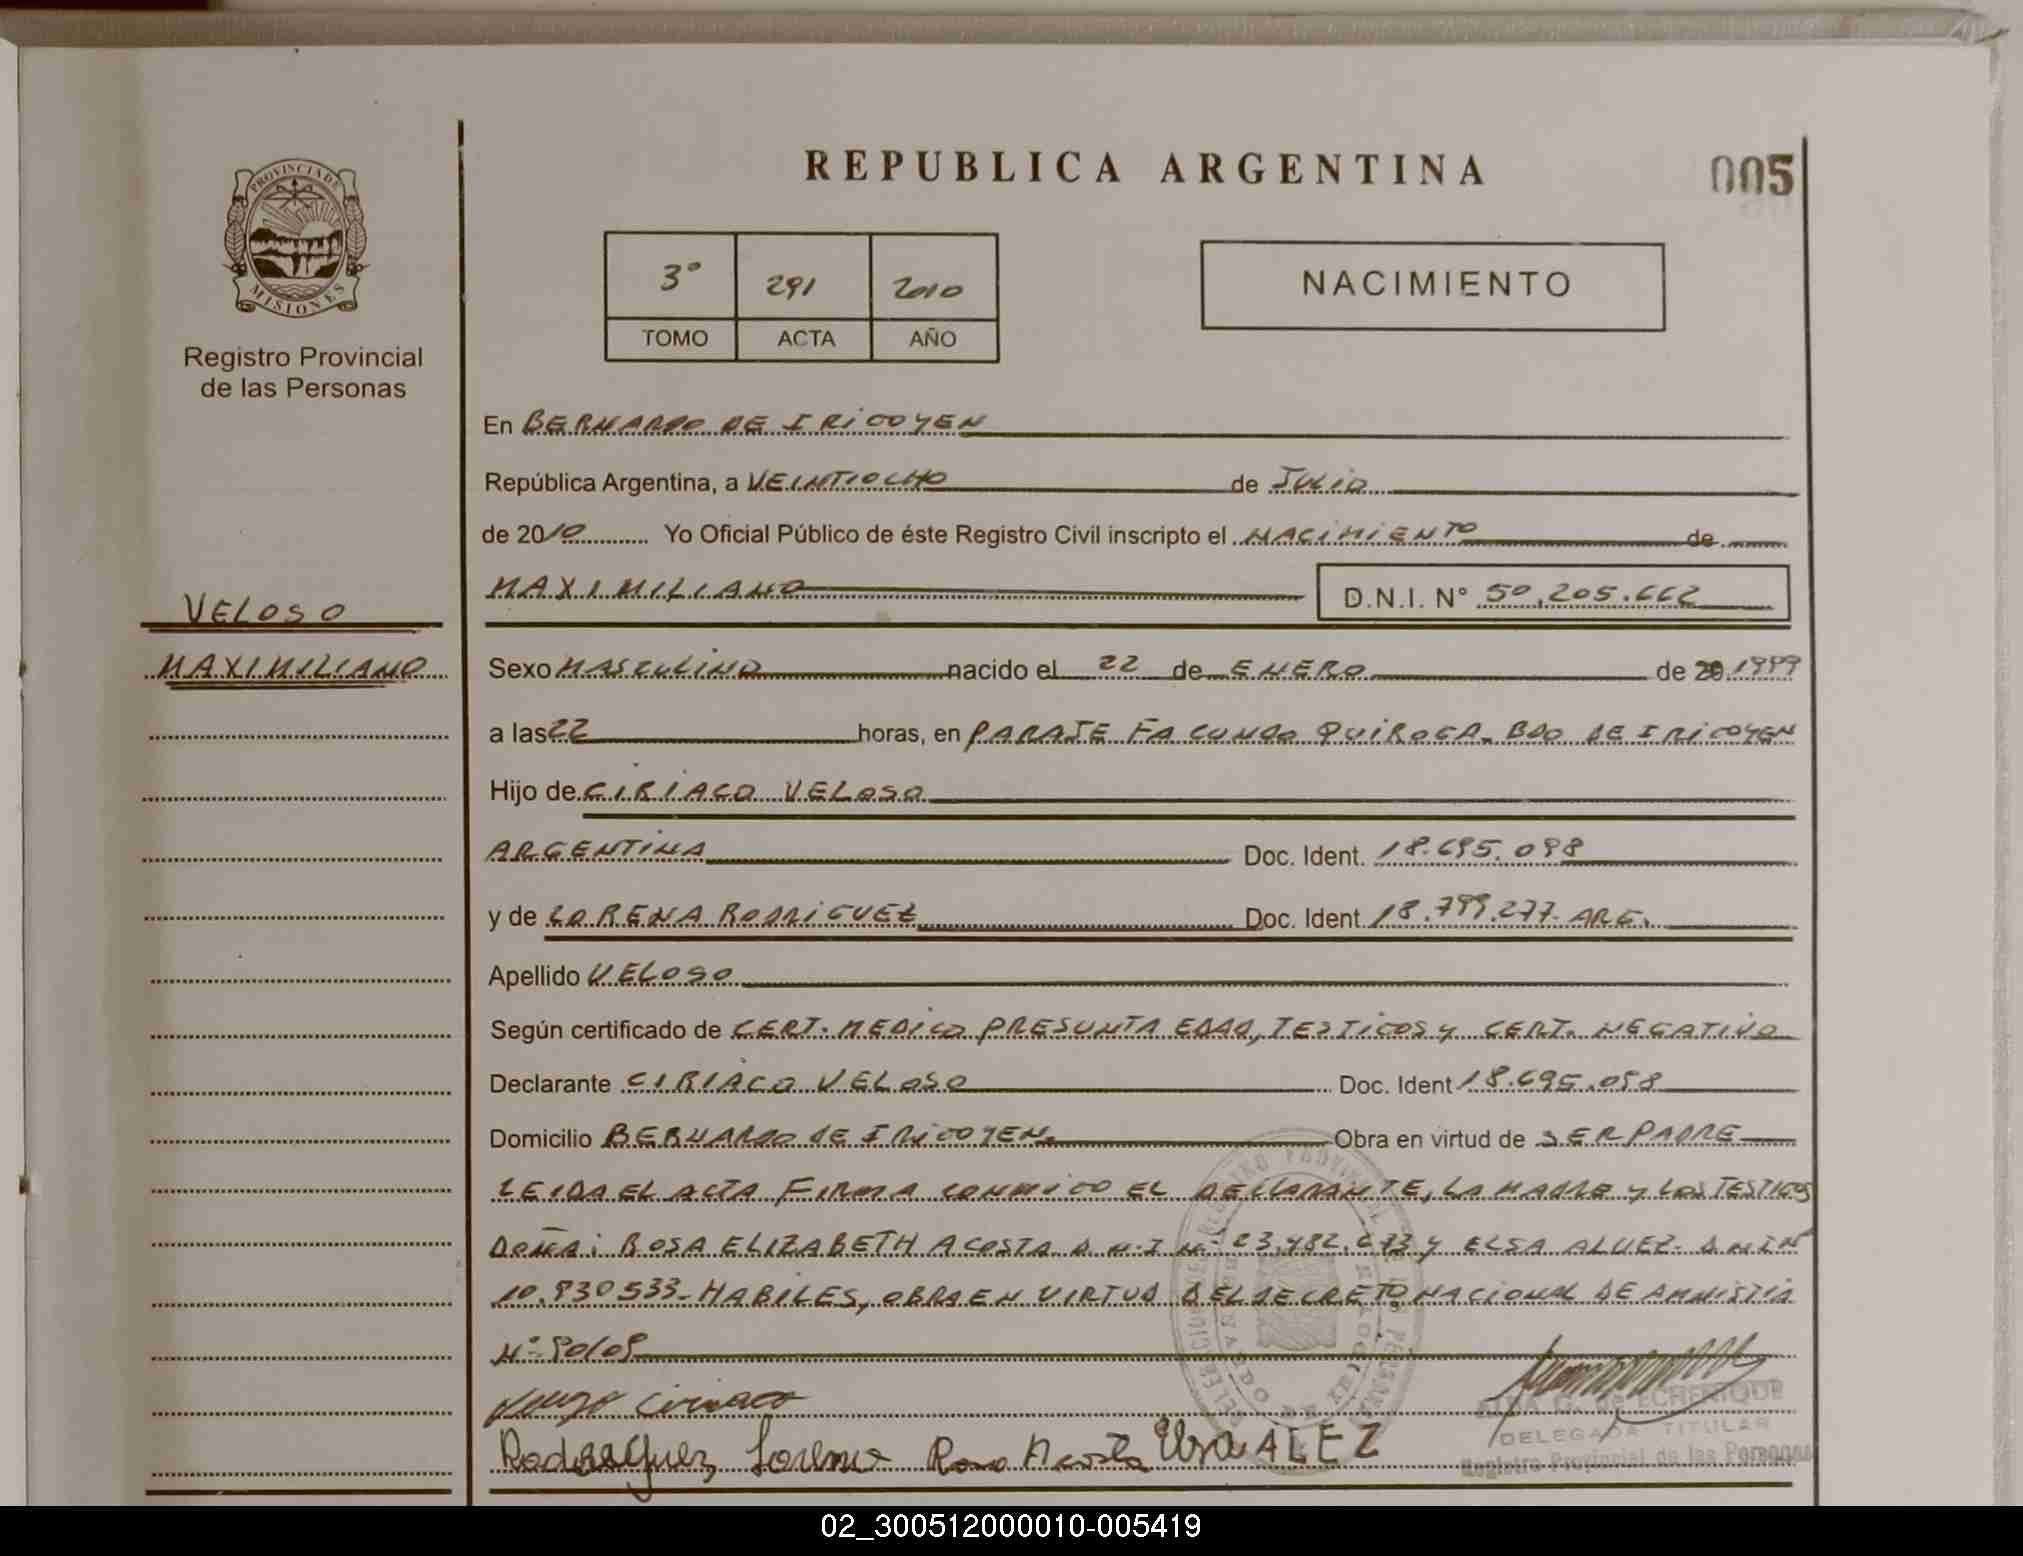 REPUBLICA ARGENTINA
005
PROVINCIA DE
MISIONES
Registro Provincial
de las Personas
3° 291 2010
TOMO ACTA AÑO
NACIMIENTO
En BERNARDO DE IRIGOYEN
República Argentina, a VEINTIOCHO de JULIO
de 2010 Yo Oficial Público de éste Registro Civil inscripto el NACIMIENTO de
MAXIMILIANO D.N.I. N° 50.205.662
VELOSO
MAXIMILIANO
Sexo MASCULINO nacido el 22 de ENERO de 20 1999
a las 22 horas, en PARAJE FACUNDO QUIROGA. BDO DE IRIGOYEN
Hijo de CIRIACO VELOSO
ARGENTINA Doc. Ident. 18.695.098
y de LORENA RODRIGUEZ Doc. Ident 18.799.277 ARG.
Apellido VELOSO
Según certificado de CERT. MEDICO PRESUNTA EDAD, TESTIGOS y CERT. NEGATIVO
Declarante CIRIACO VELOSO Doc. Ident 18.695.098
Domicilio BERNARDO DE IRIGOYEN. Obra en virtud de SER PADRE
LEIDA EL ACTA FIRMA CONMIGO EL DECLARANTE, LA MADRE y LOS TESTIGOS
DOÑA: ROSA ELIZABETH ACOSTA D.N.I N° 23.482.673 y ELSA ALVEZ. D N I N°
10.930533- HABILES, OBRA EN VIRTUD DEL DECRETO NACIONAL DE AMNISTIA
N° 90/09
Ciriaco
Rodrasguez Lorena Rosa Acosta Elsa ALEZ
DE ECHENIQUE
DELEGADA TITULAR
Registro Provincial de las Personas
02_300512000010-005419